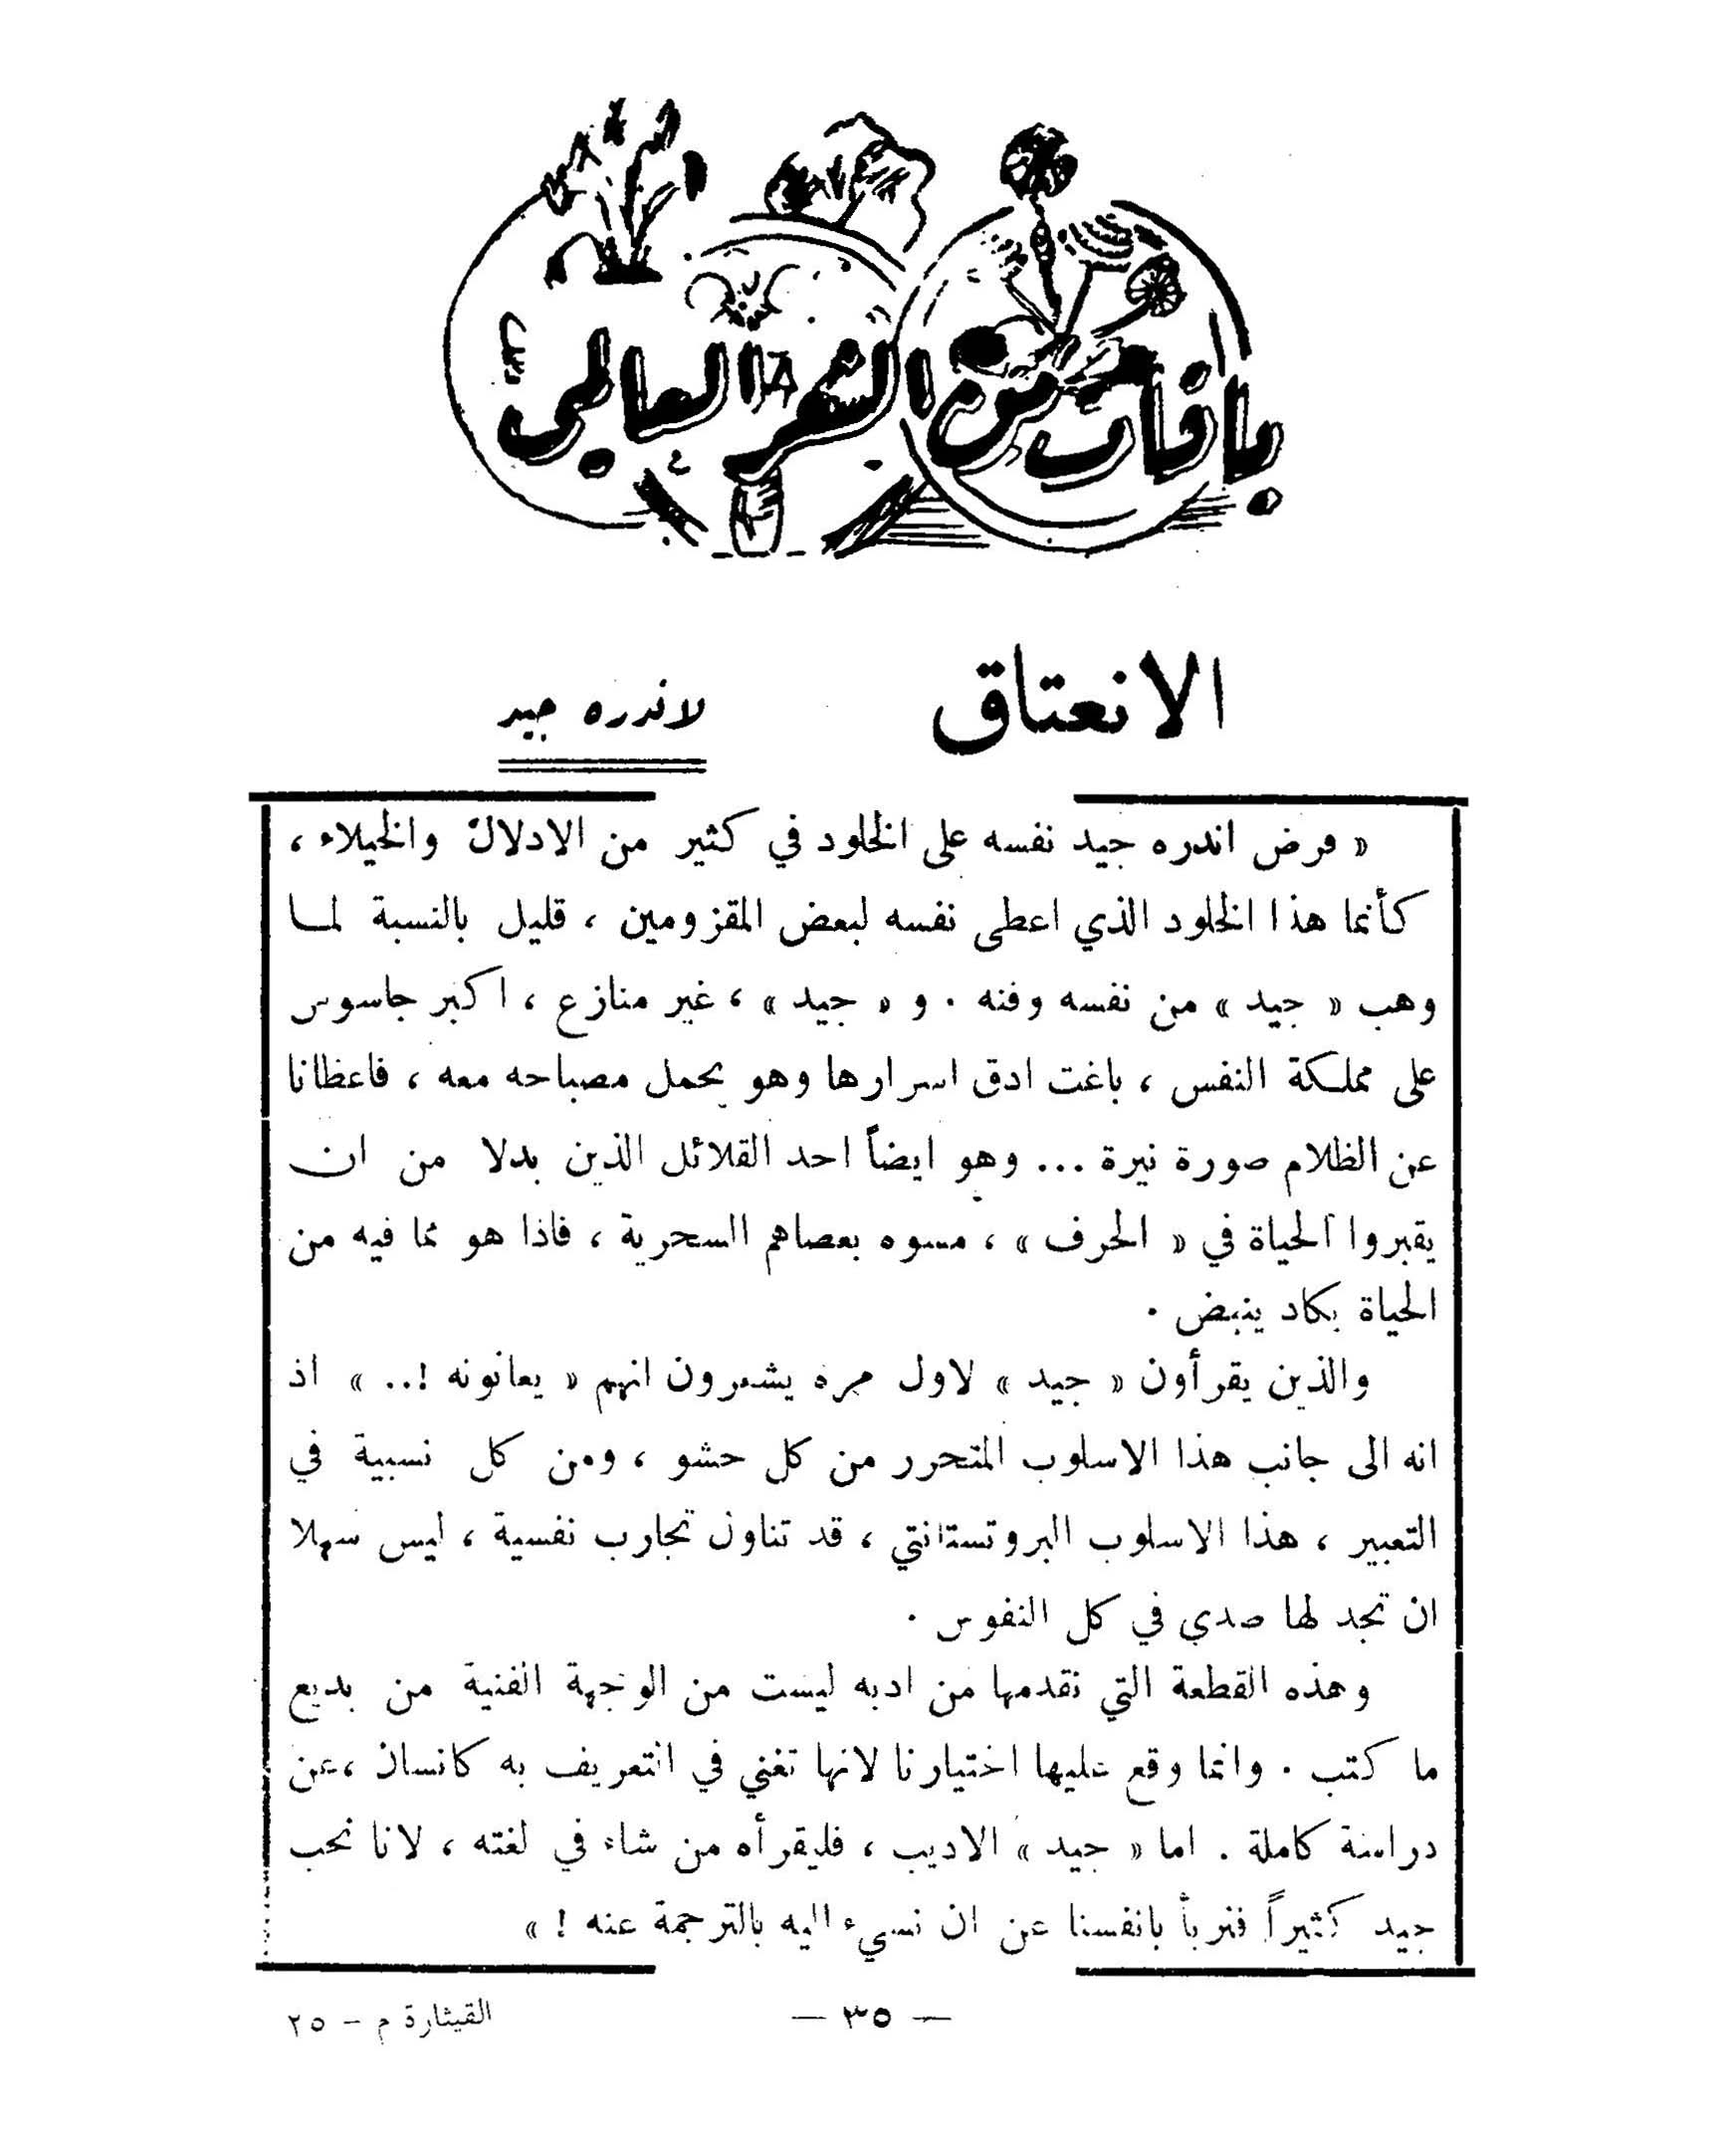 باقات من الشعر العالمي
الانعتاق
لاندره جيد
« فرض اندره جيد نفسه على الخلود في كثير من الادلال والخيلاء ،
كأنما هذا الخلود الذي اعطى نفسه لبعض المقزومين ، قليل بالنسبة لما
وهب « جيد » من نفسه وفنه . و « جيد » ، غير منازع ، اكبر جاسوس
على مملكة النفس ، باغت ادق اسرارها وهو يحمل مصباحه معه ، فاعطانا
عن الظلام صورة نيرة ... وهو ايضاً احد القلائل الذين بدلا من ان
يقبروا الحياة في « الحرف » ، مسوه بعصاهم السحرية ، فاذا هو مما فيه من
الحياة يكاد ينبض .
والذين يقرأون « جيد » لاول مره يشعرون انهم « يعانونه !.. » اذ
انه الى جانب هذا الاسلوب المتحرر من كل حشو ، ومن كل نسبية في
التعبير ، هذا الاسلوب البروتستانتي ، قد تناول تجارب نفسية ، ليس سهلا
ان تجد لها صدى في كل النفوس .
وهذه القطعة التي نقدمها من ادبه ليست من الوجهة الفنية من بديع
ما كتب . وانما وقع عليها اختيارنا لانها تغني في التعريف به كانسان ،عن
دراسة كاملة . اما « جيد » الاديب ، فليقرأه من شاء في لغته ، لانا نحب
جيد كثيراً فنربأ بانفسنا عن ان نسيء اليه بالترجمة عنه ! »
— ٣٥ —
القيثارة م - ٢٥